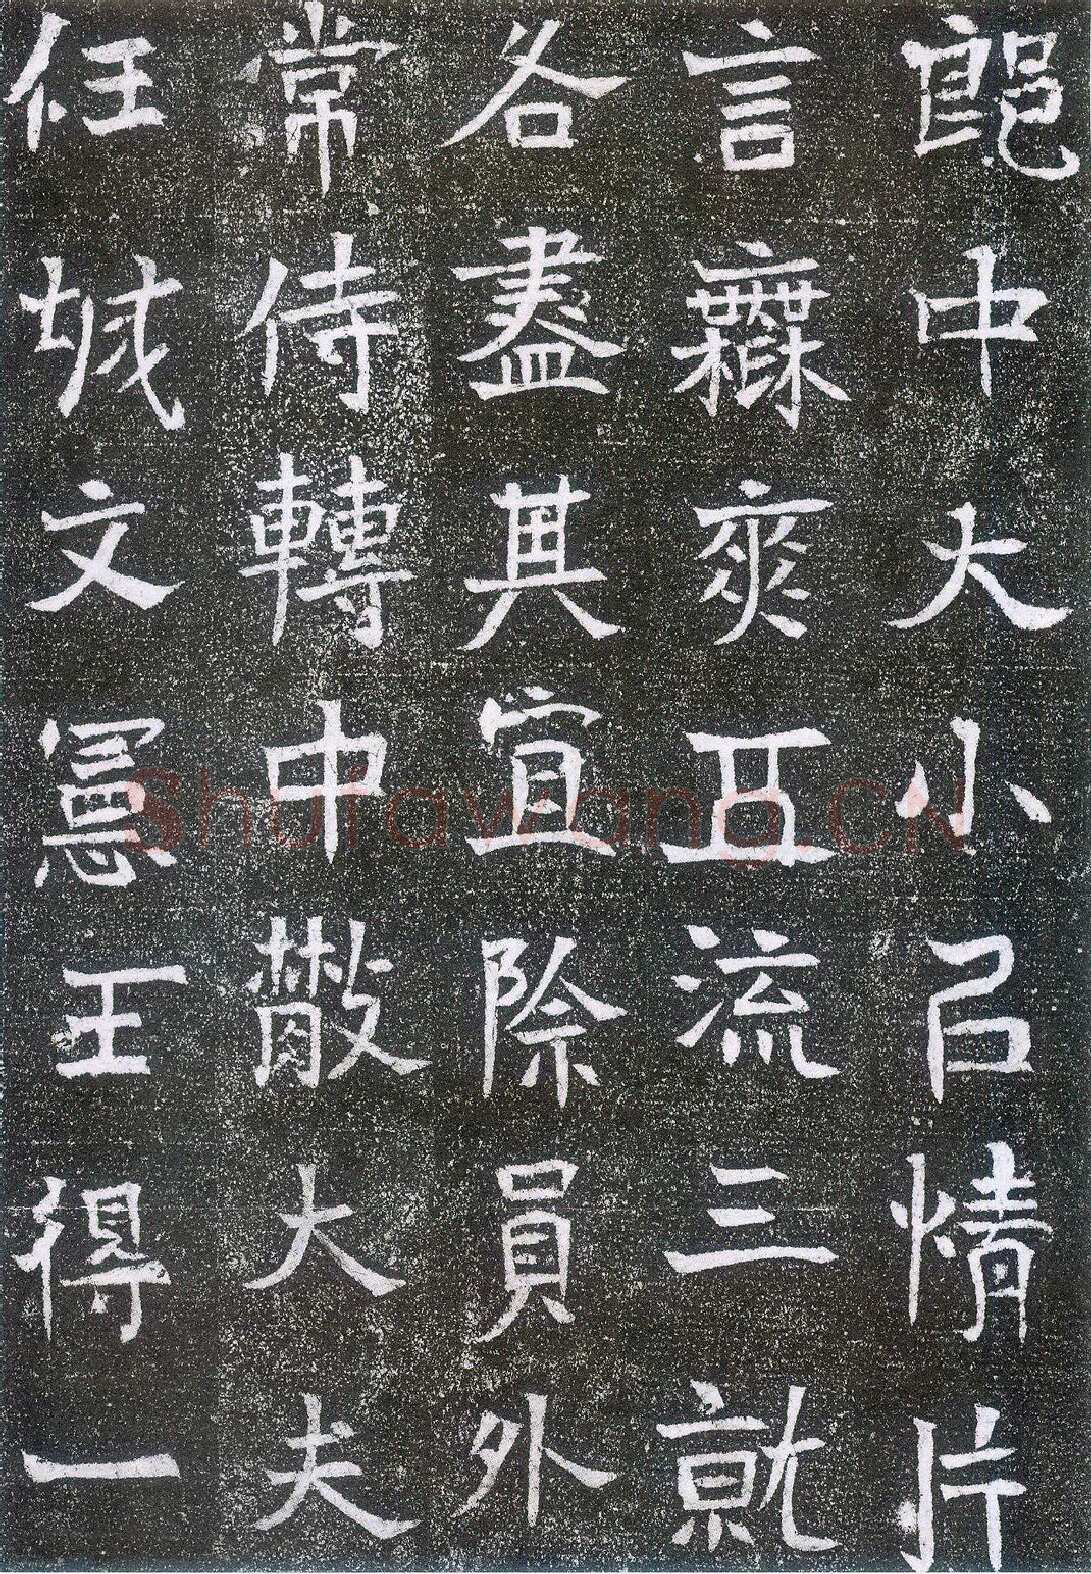 郎中大小㠯情片
言橆爽五流三就
各盡其宜除員外
常侍轉中散大夫
任城文憲王得一
Shufawang.CN